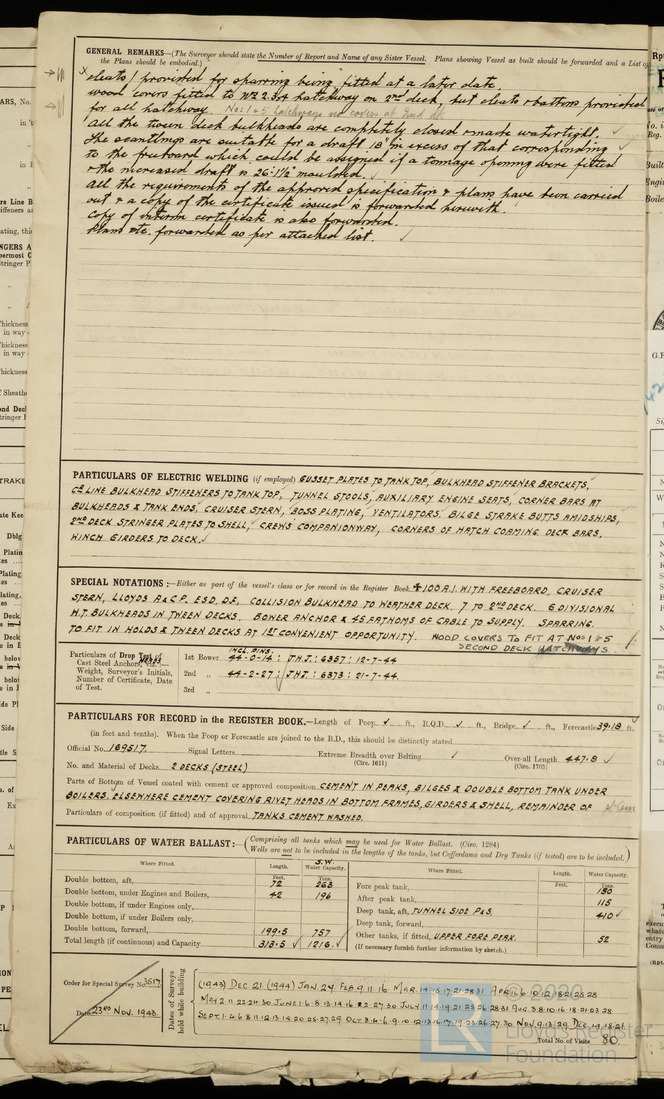 GENERAL REMARKS—(The Surveyor should state the Number of Report and Name of any Sister Vessel. Plans showing Vessel as built should be forwarded and a List of
the Plans should be embodied.)
cleats / provided for sparring being fitted at a later date.
wood covers fitted to Nos 2.3&4 hatchway on 2nd deck, but cleats & battens provided
for all hatchway. Nos 1 & 5 hatchways no covers at 2nd dk
All the tween deck bulkheads are completely closed & made watertight.
The scantlings are suitable for a draft 18" in excess of that corresponding
to the freeboard which could be assigned if a tonnage opening were fitted
& the increased draft is 26'-1½ moulded.
All the requirements of the approved specification & plans have been carried
out & a copy of the certificate issued is forwarded herewith.
Copy of interim certificate is also forwarded.
Plans etc. forwarded as per attached list.
PARTICULARS OF ELECTRIC WELDING (if employed) GUSSET PLATES TO TANK TOP, BULKHEAD STIFFENER BRACKETS,
CR LINE BULKHEAD STIFFENERS TO TANK TOP, TUNNEL STOOLS, AUXILIARY ENGINE SEATS, CORNER BARS AT
BULKHEADS & TANK ENDS, CRUISER STERN, BOSS PLATING, VENTILATORS. BILGE STRAKE BUTTS AMIDSHIPS,
2ND DECK STRINGER PLATES TO SHELL, CREWS COMPANIONWAY, CORNERS OF HATCH COAMING DECK BARS,
WINCH GIRDERS TO DECK.
SPECIAL NOTATIONS:—Either as part of the vessel's class or for record in the Register Book. ✠100 A.1. WITH FREEBOARD, CRUISER
STERN, LLOYDS A & C P. ESD, D.F. COLLISION BULKHEAD TO WEATHER DECK. 7 TO 2ND DECK. 6 DIVISIONAL
W.T. BULKHEADS IN TWEEN DECKS. BOWER ANCHOR & 45 FATHOMS OF CABLE TO SUPPLY. SPARRING
TO FIT IN HOLDS & TWEEN DECKS AT 1ST CONVENIENT OPPORTUNITY. WOOD COVERS TO FIT AT Nos 1 & 5
SECOND DECK HATCHWAYS
Particulars of Drop Test of
Cast Steel Anchors, viz.:—
Weight, Surveyor's Initials,
Number of Certificate, Date
of Test.
INCL. PINS.
1st Bower 44-0-14: J.H.J.: 6357: 12-7-44
2nd „ 44-2-27: J.H.J.: 6373: 21-7-44
3rd „
PARTICULARS FOR RECORD in the REGISTER BOOK.—Length of Poop ✓ ft., R.Q.D. ✓ ft., Bridge ✓ ft., Forecastle 39.18 ft.
(in feet and tenths). When the Poop or Forecastle are joined to the B.D., this should be distinctly stated
Official No. 169517. Signal Letters Extreme Breadth over Belting ✓ Over-all Length 447.8 ✓
(Circ. 1611) (Circ. 1703)
No. and Material of Decks 2 DECKS (STEEL)
Parts of Bottom of Vessel coated with cement or approved composition CEMENT IN PEAKS, BILGES & DOUBLE BOTTOM TANK UNDER
BOILERS. ELSEWHERE CEMENT COVERING RIVET HEADS IN BOTTOM FRAMES, GIRDERS & SHELL, REMAINDER OF
Particulars of composition (if fitted) and of approval TANKS CEMENT WASHED.
PARTICULARS OF WATER BALLAST:— (Comprising all tanks which may be used for Water Ballast. (Circ. 1284)
Wells are not to be included in the lengths of the tanks, but Cofferdams and Dry Tanks (if tested) are to be included.)
Where Fitted. Length. S.W. Water Capacity. Where Fitted. Length. Water Capacity.
Feet. Tons. Feet. Tons.
Double bottom, aft, 72 263 Fore peak tank, 130
Double bottom, under Engines and Boilers, 42 196 After peak tank, 115
Double bottom, if under Engines only, Deep tank, aft, TUNNEL SIDE P&S. 410 ✓
Double bottom, if under Boilers only, Deep tank, forward,
Double bottom, forward, 199.5 757 Other tanks, if fitted, UPPER FORE PEAK. 52
Total length (if continuous) and Capacity 313.5 ✓ 1216. ✓ (If necessary furnish further information by sketch.)
Order for Special Survey No. 3517
Date 23RD NOV. 1943.
Dates of Surveys
held while building
(1943) DEC 21 (1944) JAN. 24 FEB. 9. 11. 16 MAR. 14. 15. 17. 21. 28. 31 APR. 6. 10. 12. 18. 21. 25. 28
MAY 2. 11. 22. 24. 30 JUNE 1. 6. 8. 13. 14. 16. 22. 27. 30 JULY 11. 14. 19. 21. 25. 26. 28. 31 AUG. 3. 8. 10. 16. 18. 21. 23. 28
SEPT. 1. 4. 6. 8. 11. 12. 13. 14. 20. 25. 27. 29. OCT. 3. 4. 6. 9. 10. 12. 13. 16. 17. 19. 23. 26. 27. 30 NOV. 9. 13. 29 DEC. 14. 18. 21.
Total No. of Visits 80
© 2020
Lloyd's Register
Foundation